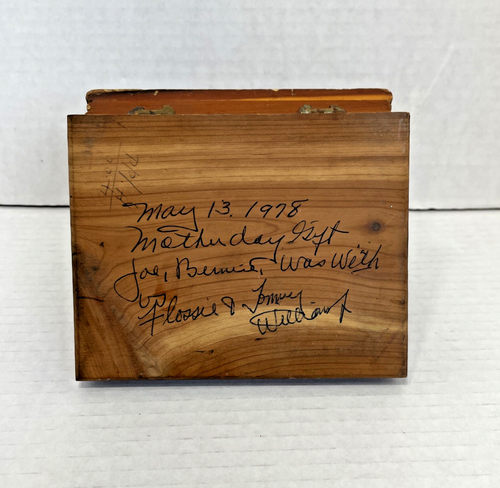 May 13. 1978
Motherday Gift
Joe, Bennie, Was With
us
Flossie & Tommy
Williams
4.00